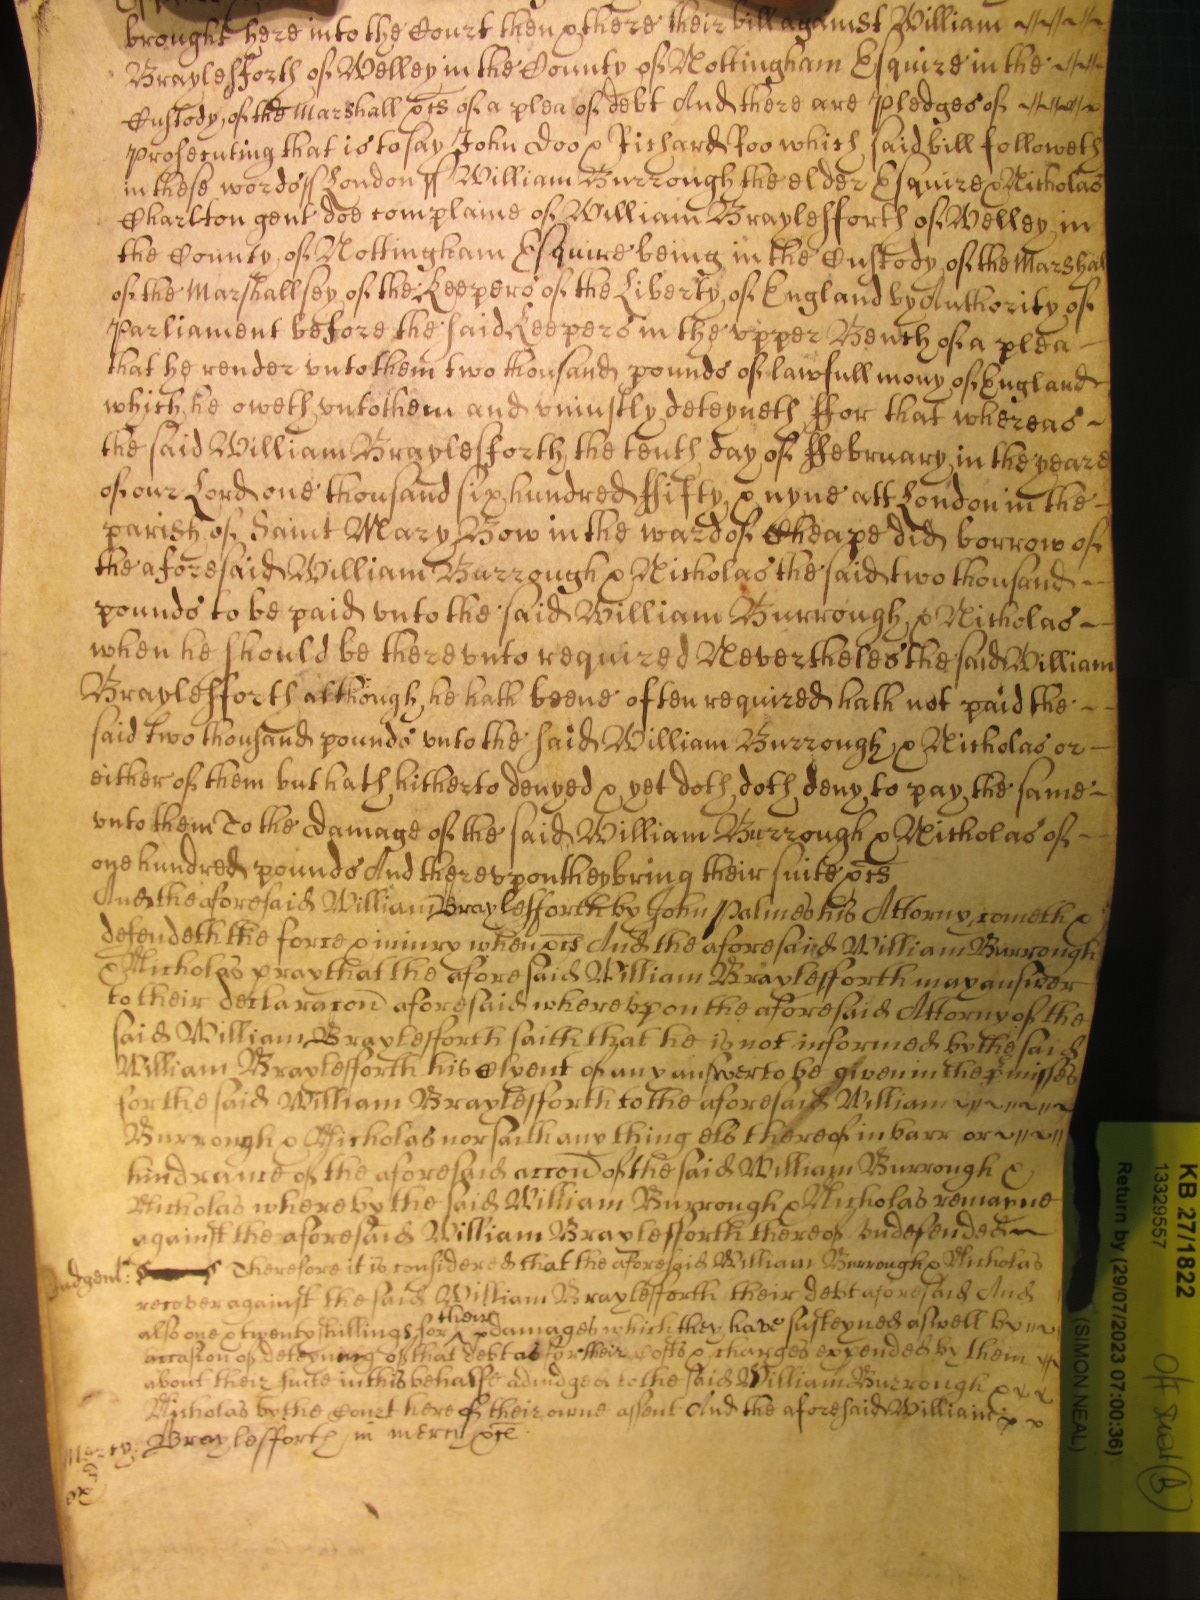 brought here into the Court then & there their bill against William
Braylesfforth of Welley in the County of Nottingham Esquire in the
Custody of the Marshall &cs of a plea of debt And there are Pledges of
Prosecuting that is to say John Doo & Richard Roo which said bill followeth
in these words ss London ss William Burrough the elder Esquire & Nicholas
Charlton gent doe complaine of William Braylesfforth of Welley in
the County of Nottingham Esquire being in the Custody of the Marshal
of the Marshallsey of the Keepers of the Liberty of England by Authority of
Parliament before the said Keepers in the vpper Bench of a plea
that he render vnto them two thousand pounds of lawfull mony of England
which he oweth vnto them and vniustly deteyneth ffor that whereas
the said William Braylesfforth the tenth day of ffebruary in the yeare
of our Lord one thousand six hundred ffifty & nyne att London in the
parish of Saint Mary Bow in the ward of Cheape did borrow of
the aforesaid William Burrough & Nicholas the said two thousand
pounds to be paid vnto the said William Burrough & Nicholas
when he should be therevnto required Neverthelesthe said William
Braylesfforth although he hath beene often required hath not paid the
said two thousand pounds vnto the said William Burrough & Nicholas or
either of them but hath hitherto denyed & yet doth doth deny to pay the same
vnto them To the damage of the said William Burrough & Nicholas of
one hundred pounds And therevpon they bring their suite &cs
And the aforesaid William Braylesfforth by John Palmes his Attorny cometh &
defendeth the force & iniury when &cs And the aforesaid William Burrough
& Nicholas pray that the aforesaid William Braylesfforth may answer
to their declaracon aforesaid wherevpon the aforesaid Attorny of the
said William Braylesfforth saith that he is not informed by the said
William Braylesfforth his Clyent of any answer to be given in the pmisses
for the said William Braylesfforth to the aforesaid William
Burrough & Nicholas nor saith any thing els thereof in barr or
hindrance of the aforesaid accon of the said William Burrough &
Nicholas whereby the said William Burrough & Nicholas remayne
against the aforesaid William Braylesfforth thereof vndefended
Iudgent: Therefore it is considered that the aforesaid William Burrough & Nicholas
recover against the said William Braylesfforth their debt aforesaid And
also one & twenty shillings for their damages which they have susteyned aswell by
occasion of deteyning of that debt as for their costs & charges expended by them
about their suite in this behalfe adiudged to the said William Burrough &
Nicholas by the Court here of their owne assent And the aforesaid William
Mercy: Braylesfforth in mercy &ce
KB 27/1822
13329557
Return by (29/07/2023 07:00:36)
(SIMON NEAL)